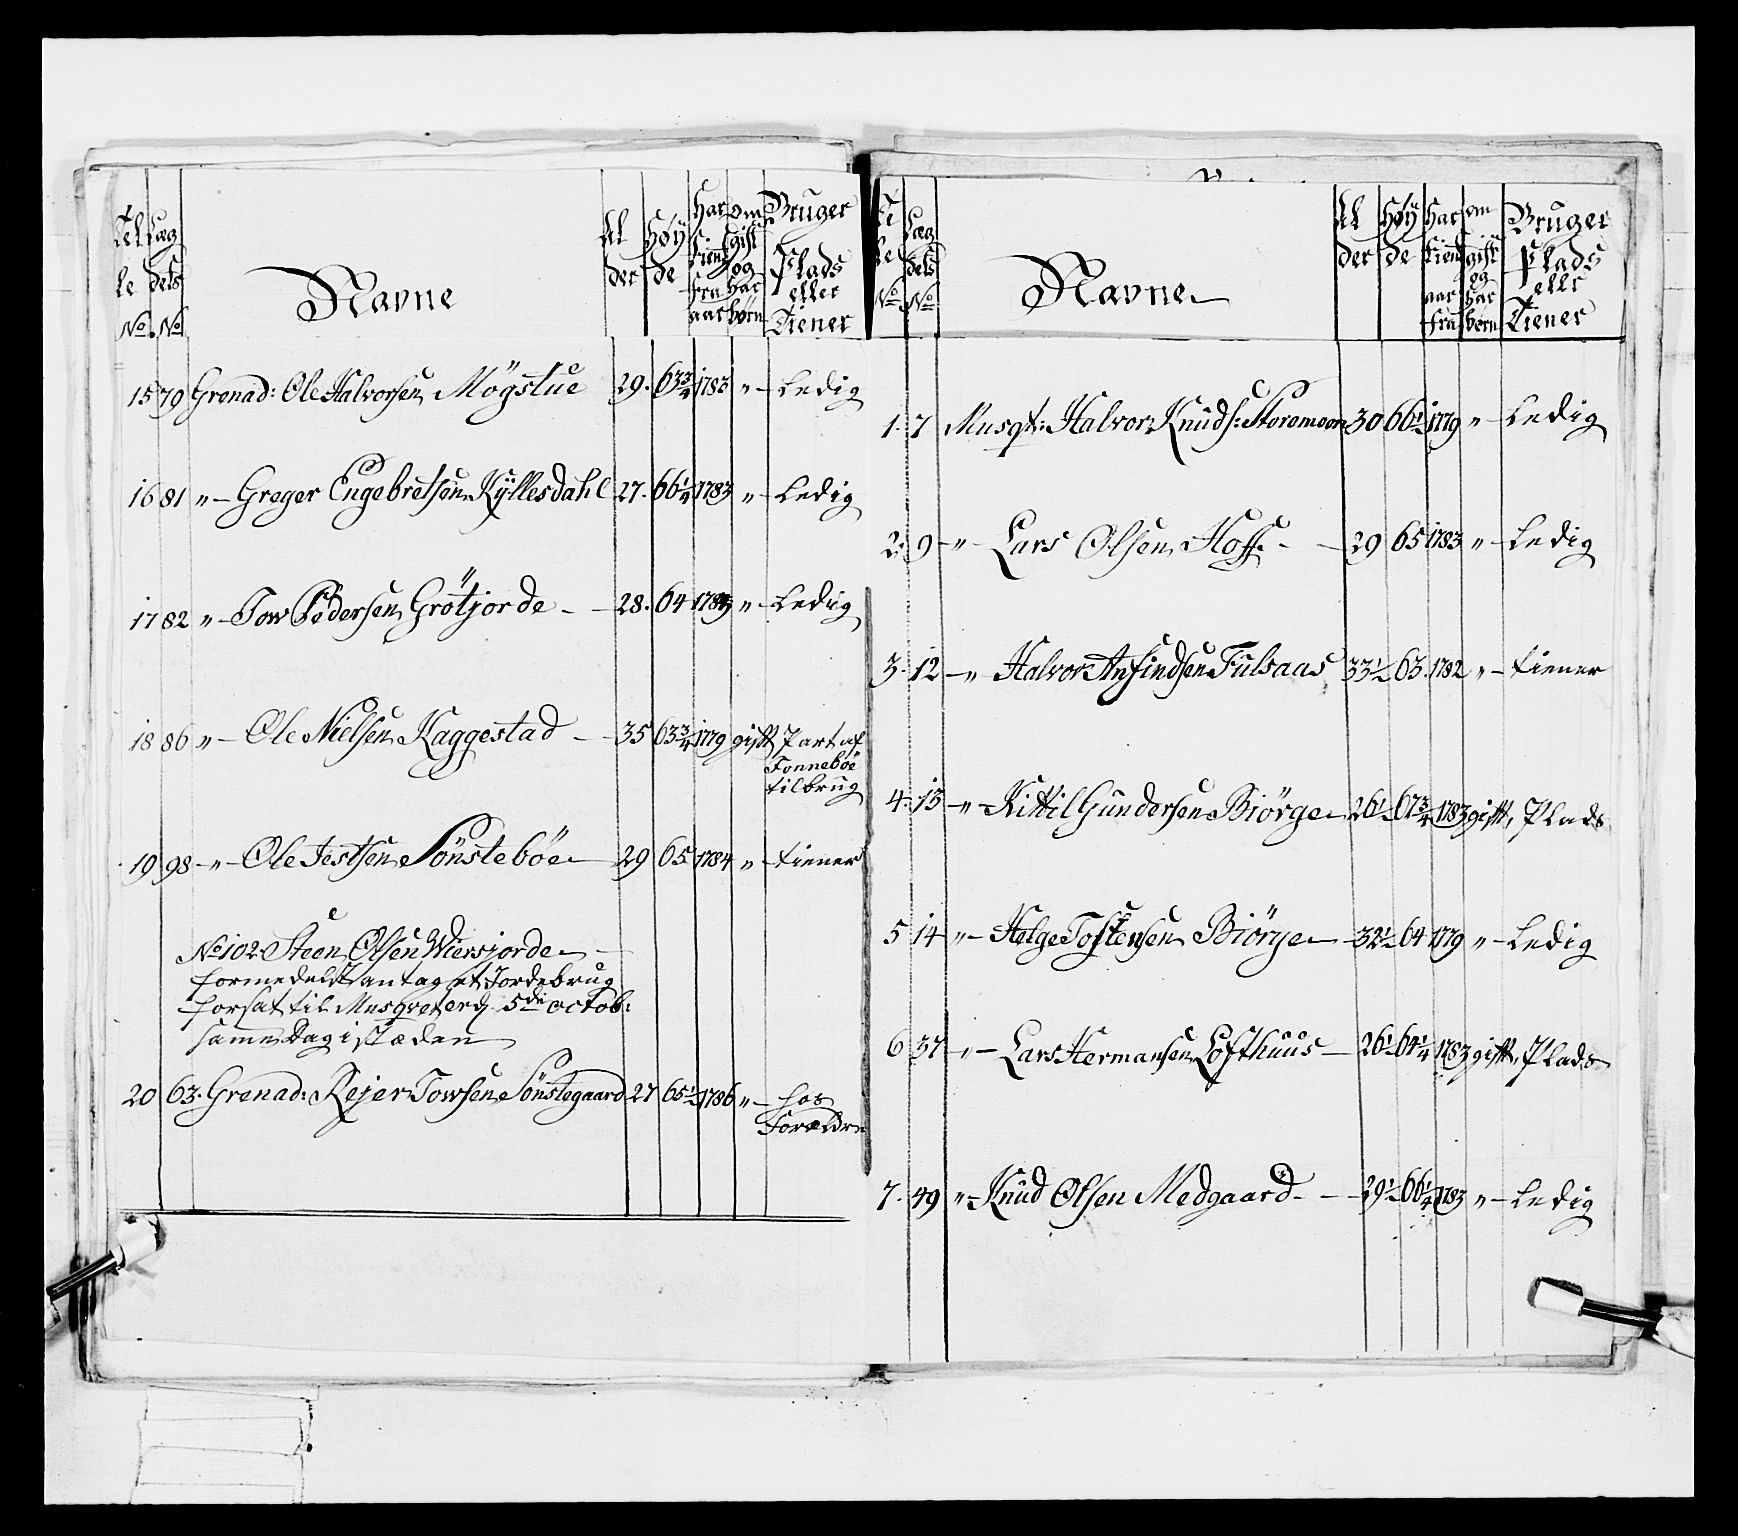 Tel Læg Navne Al Høy Har om Bruger
le dels der de tient gift Plads
No. No fra og eller
aar har Tiener
børn
15 79 Grenad: Ole Halvorsen Møgstue 29. 63 3/4 1783 " Ledig
16 81 " Greger Engebretsen Kyllesdahl 27. 66 1/4 1783 " Ledig
17 82 " Tow Pedersen Grøtjorde 28. 64 " Ledig
18 86 " Ole Nielsen Kaggestad 35 63 3/4 1779 gift Part af
Tonnebøe
tilbrug
19 98 " Ole Jestsen Sønstebøe 29 65 1784 " tiener
No 102 Steen Olsen Wiersjorde
formedelst antaget Jordebrug
forsat til Musqueterq 5de octob:
samme Dag i stæden
20 63. Grenad: Rejer Towsen Sønstegaard 27 65 1/2 1786 " hos
Forældre
Te Læg Navne Al Høy Har om Bruger
le dels der de tient gift Plads
No No aar og eller
fra har Tiener
børn
1. 7 Musqt: Halvor Knuds: Storemoen 30 66 1/2 1779 " Ledig
2. 9 " Lars Olsen Hoff 29 65 1783 " Ledig
3. 12 " Halvor Anfindsen Fulsaas 33 1/2 63. 1782 " tiener
4. 13 " Kittil Gundersen Biørge 26 1/2 67 3/4 1783 gift, Plads
5 14 " Helge Tostensen Biørge 32 1/2 64 1779 " Ledig
6 37 " Lars Hermansen Lofthuus 26 1/2 64 1/4 1783 gift, Plads
7. 49 " Knud Olsen Medgaard 29 1/2 66 1/4 1783 " Ledig